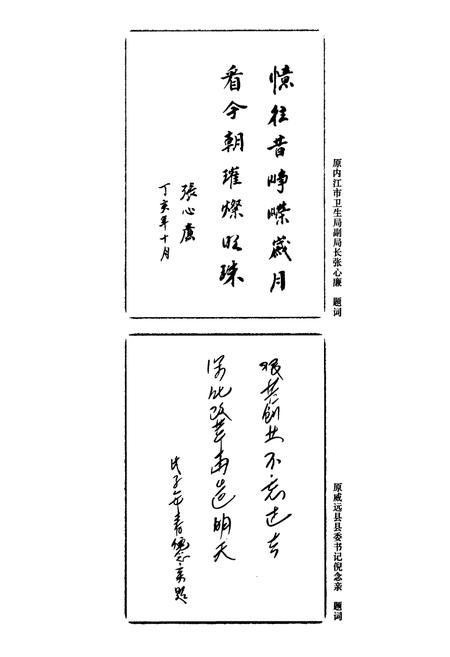 憶往昔崢嶸歲月
看今朝璀燦明珠
張心廉
丁亥年十月
原内江市卫生局副局长张心廉 题词
艰苦创业不忘过去
深化改革再造明天
戊子年春倪念亲题
原威远县县委书记倪念亲 题词